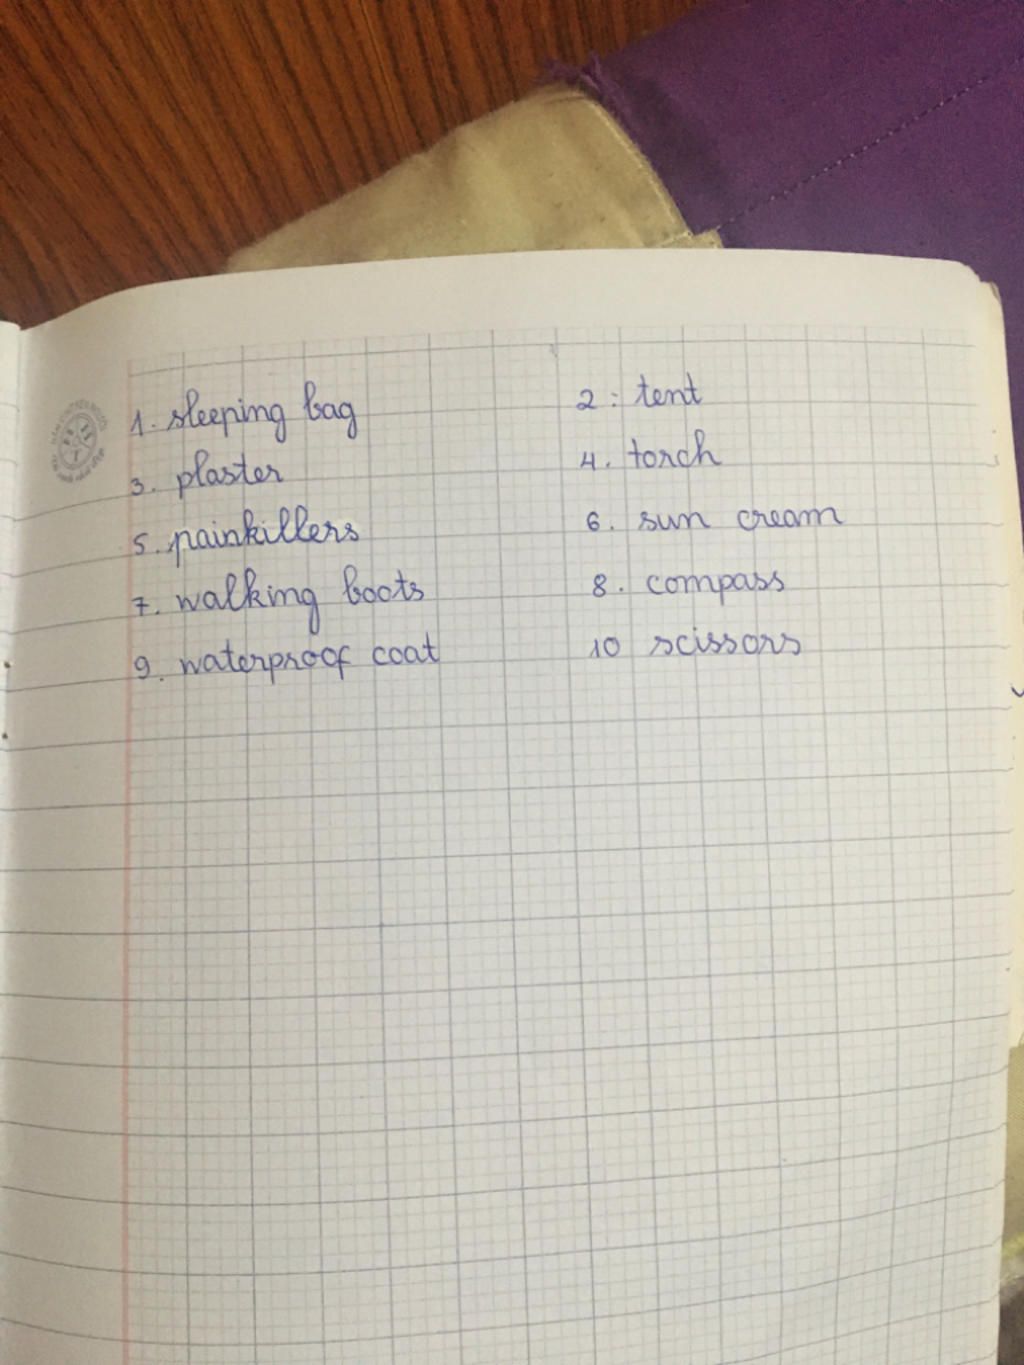 1. sleeping bag 2: tent
3. plaster 4. torch
5. painkillers 6. sun cream
7. walking boots 8. compass
9. waterproof coat 10 scissors